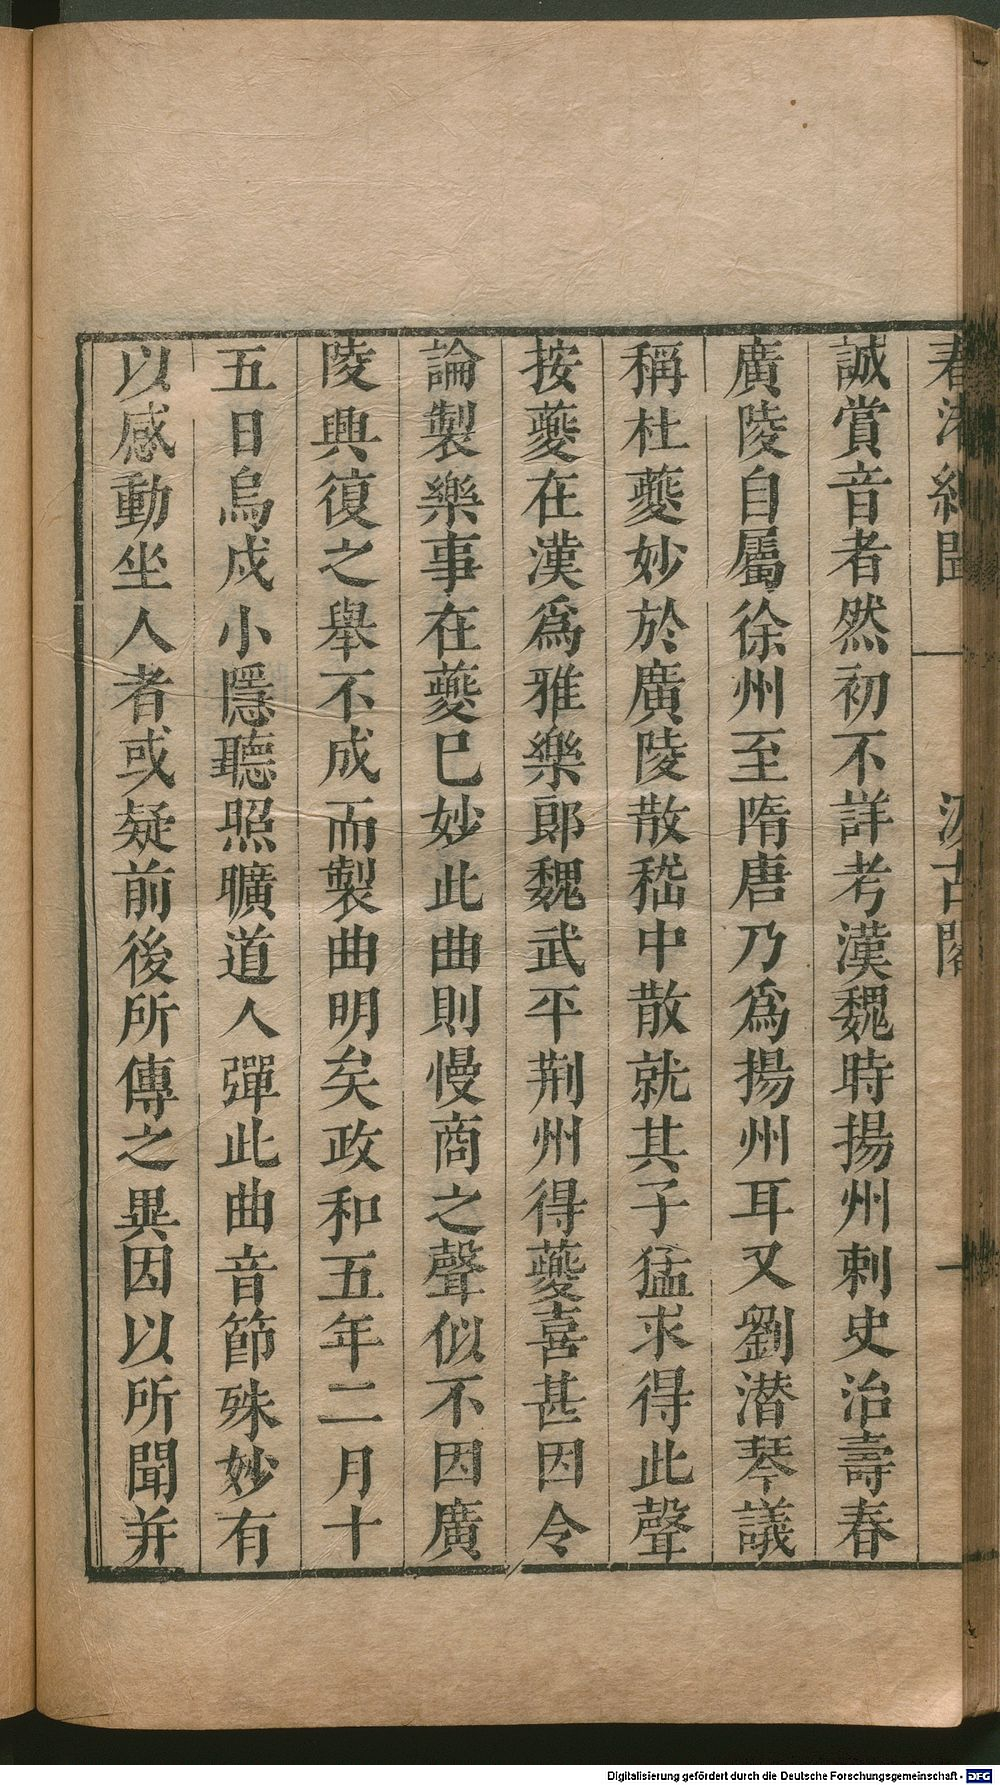 春渚紀聞 一 汲古閣
誠賞音者然初不詳考漢魏時揚州刺史治壽春
廣陵自屬徐州至隋唐乃爲揚州耳又劉潜琴議
稱杜夔妙於廣陵散嵇中散就其子猛求得此聲
按夔在漢爲雅樂郎魏武平荆州得夔喜甚因令
論製樂事在夔已妙此曲則慢商之聲似不因廣
陵興復之舉不成而製曲明矣政和五年二月十
五日烏戍小隱聽照曠道人彈此曲音節殊妙有
以感動坐人者或疑前後所傳之異因以所聞并
Digitalisierung gefördert durch die Deutsche Forschungsgemeinschaft - DFG